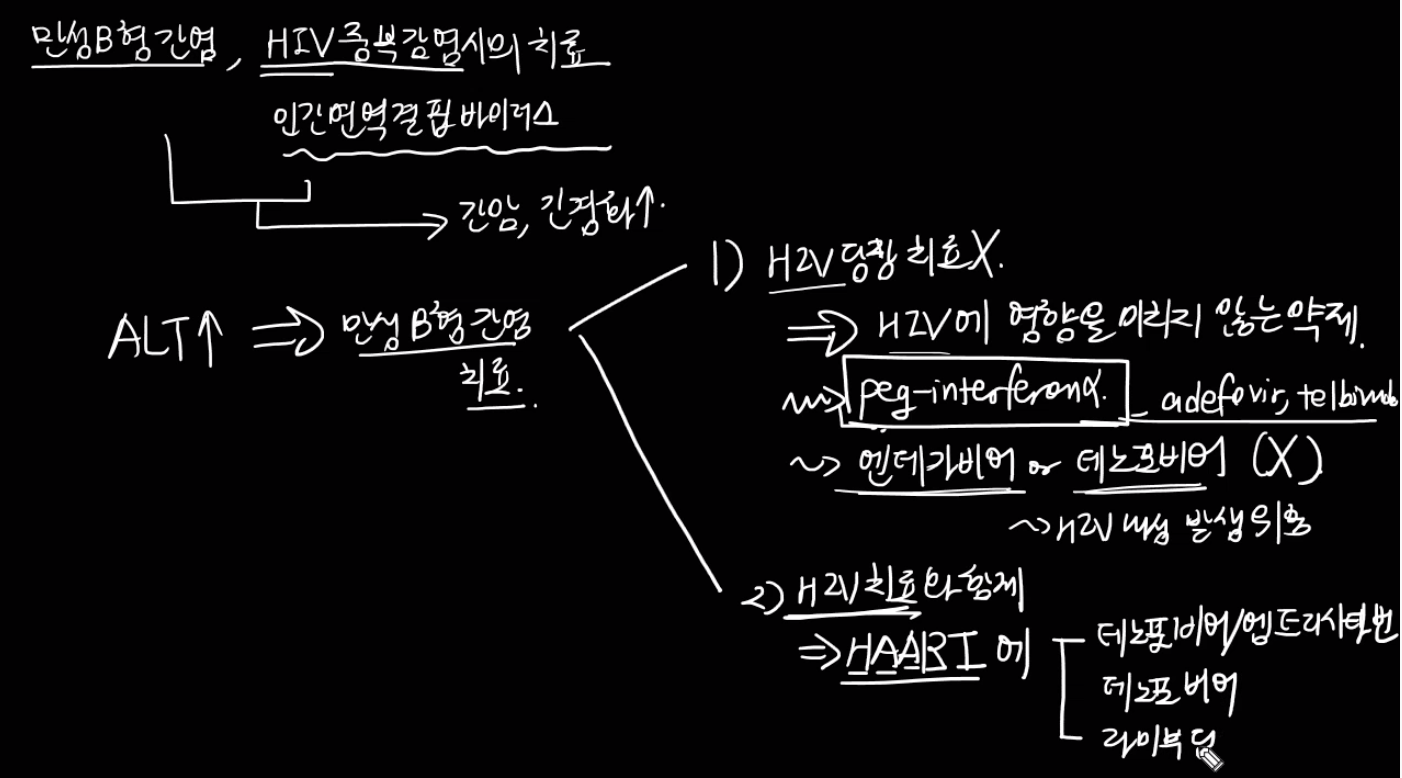 만성B형간염, HIV중복감염시의 치료
인간면역결핍바이러스
→ 간암, 간경화↑.
ALT↑ ⇒ 만성B형간염
치료.
1) HIV당장 치료X.
⇒ HIV에 영향을 미치지 않는 약제.
peg-interferonα. adefovir, telbivud
~> 엔테카비어 or 테노포비어 (X)
~> HIV 내성 발생위험
2) HIV치료와 함께
⇒ HAART에
테노포비어/엠트리시타빈
테노포비어
라미부딘